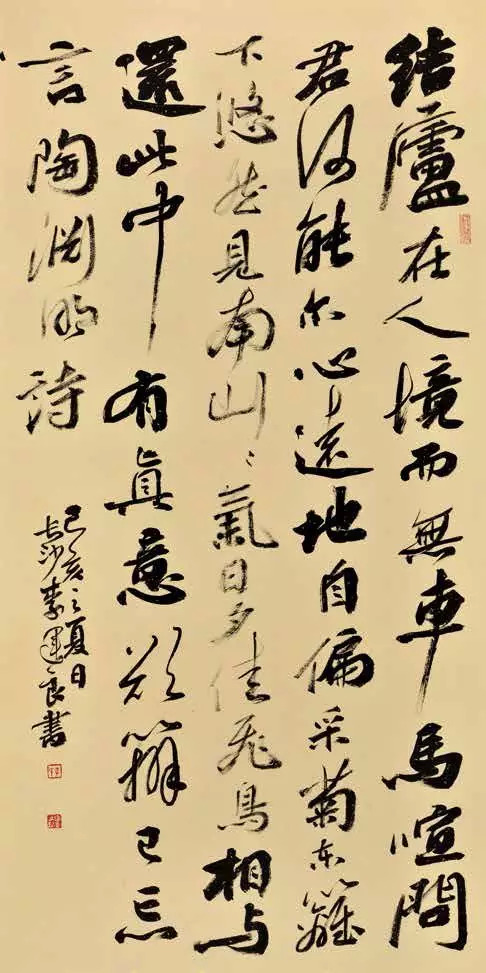 結廬在人境而無車馬喧問
君何能尔心遠地自偏采菊东籬
下悠然見南山〻氣日夕佳飛鳥相与
還此中有真意欲辯已忘
言陶渊明詩
己亥之夏日
长沙李運良書